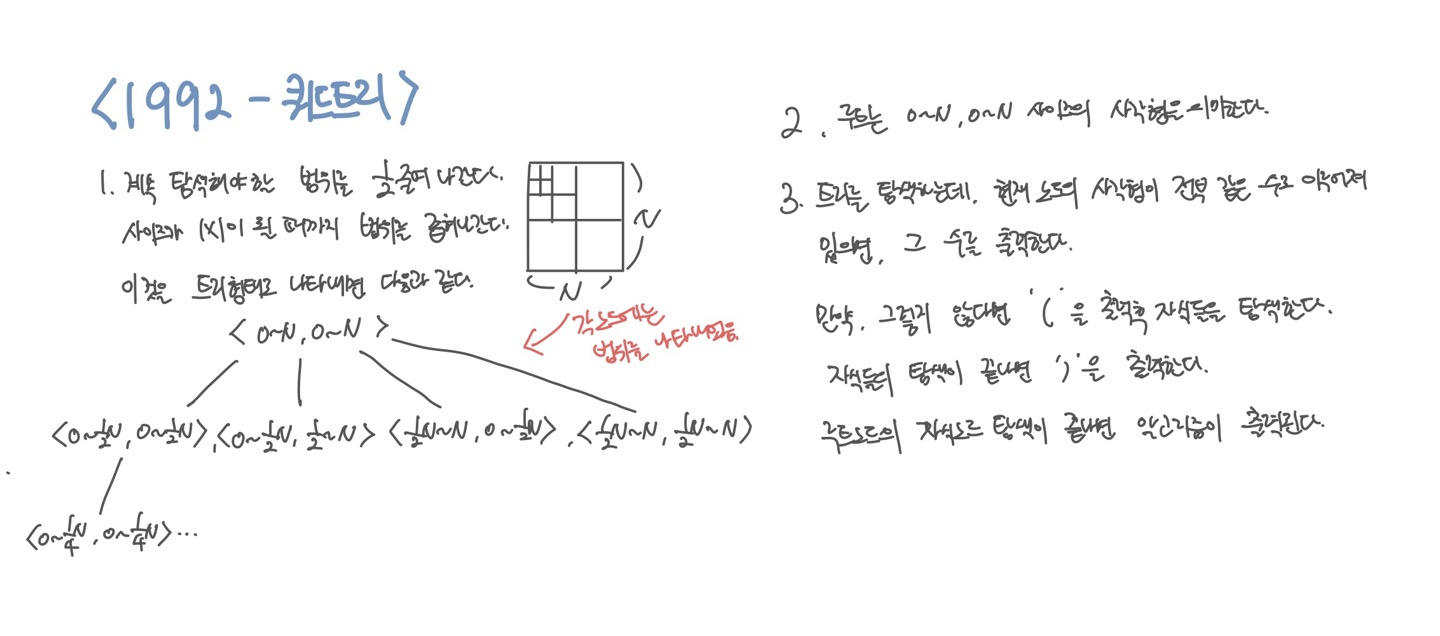 <1992 - 쿼드트리>
1. 계속 탐색해야 한 범위를 1/2 줄여 나간다.
사이즈가 1x1이 될 때까지 범위를 줄여나간다.
이것을 트리형태로 나타내면 다음과 같다.
N
N
각 노드마다는
범위를 나타내고있음.
<0~N, 0~N>
<0~1/2N, 0~1/2N>, <0~1/2N, 1/2~N> <1/2N~N, 0~1/2N>, <1/2N~N, 1/2N~N>
<0~1/4N, 0~1/4N> ...
2. 루트는 0~N, 0~N 사이즈의 사각형을 의미한다.
3. 트리를 탐색하는데, 현재 노드의 사각형이 전부 같은 수로 이루어져
있으면, 그 수를 출력한다.
만약, 그렇지 않다면 '(' 을 출력후 자식들을 탐색한다.
자식들의 탐색이 끝나면 ')'을 출력한다.
루트노드의 자식노드 탐색이 끝나면 알고리즘이 출력된다.